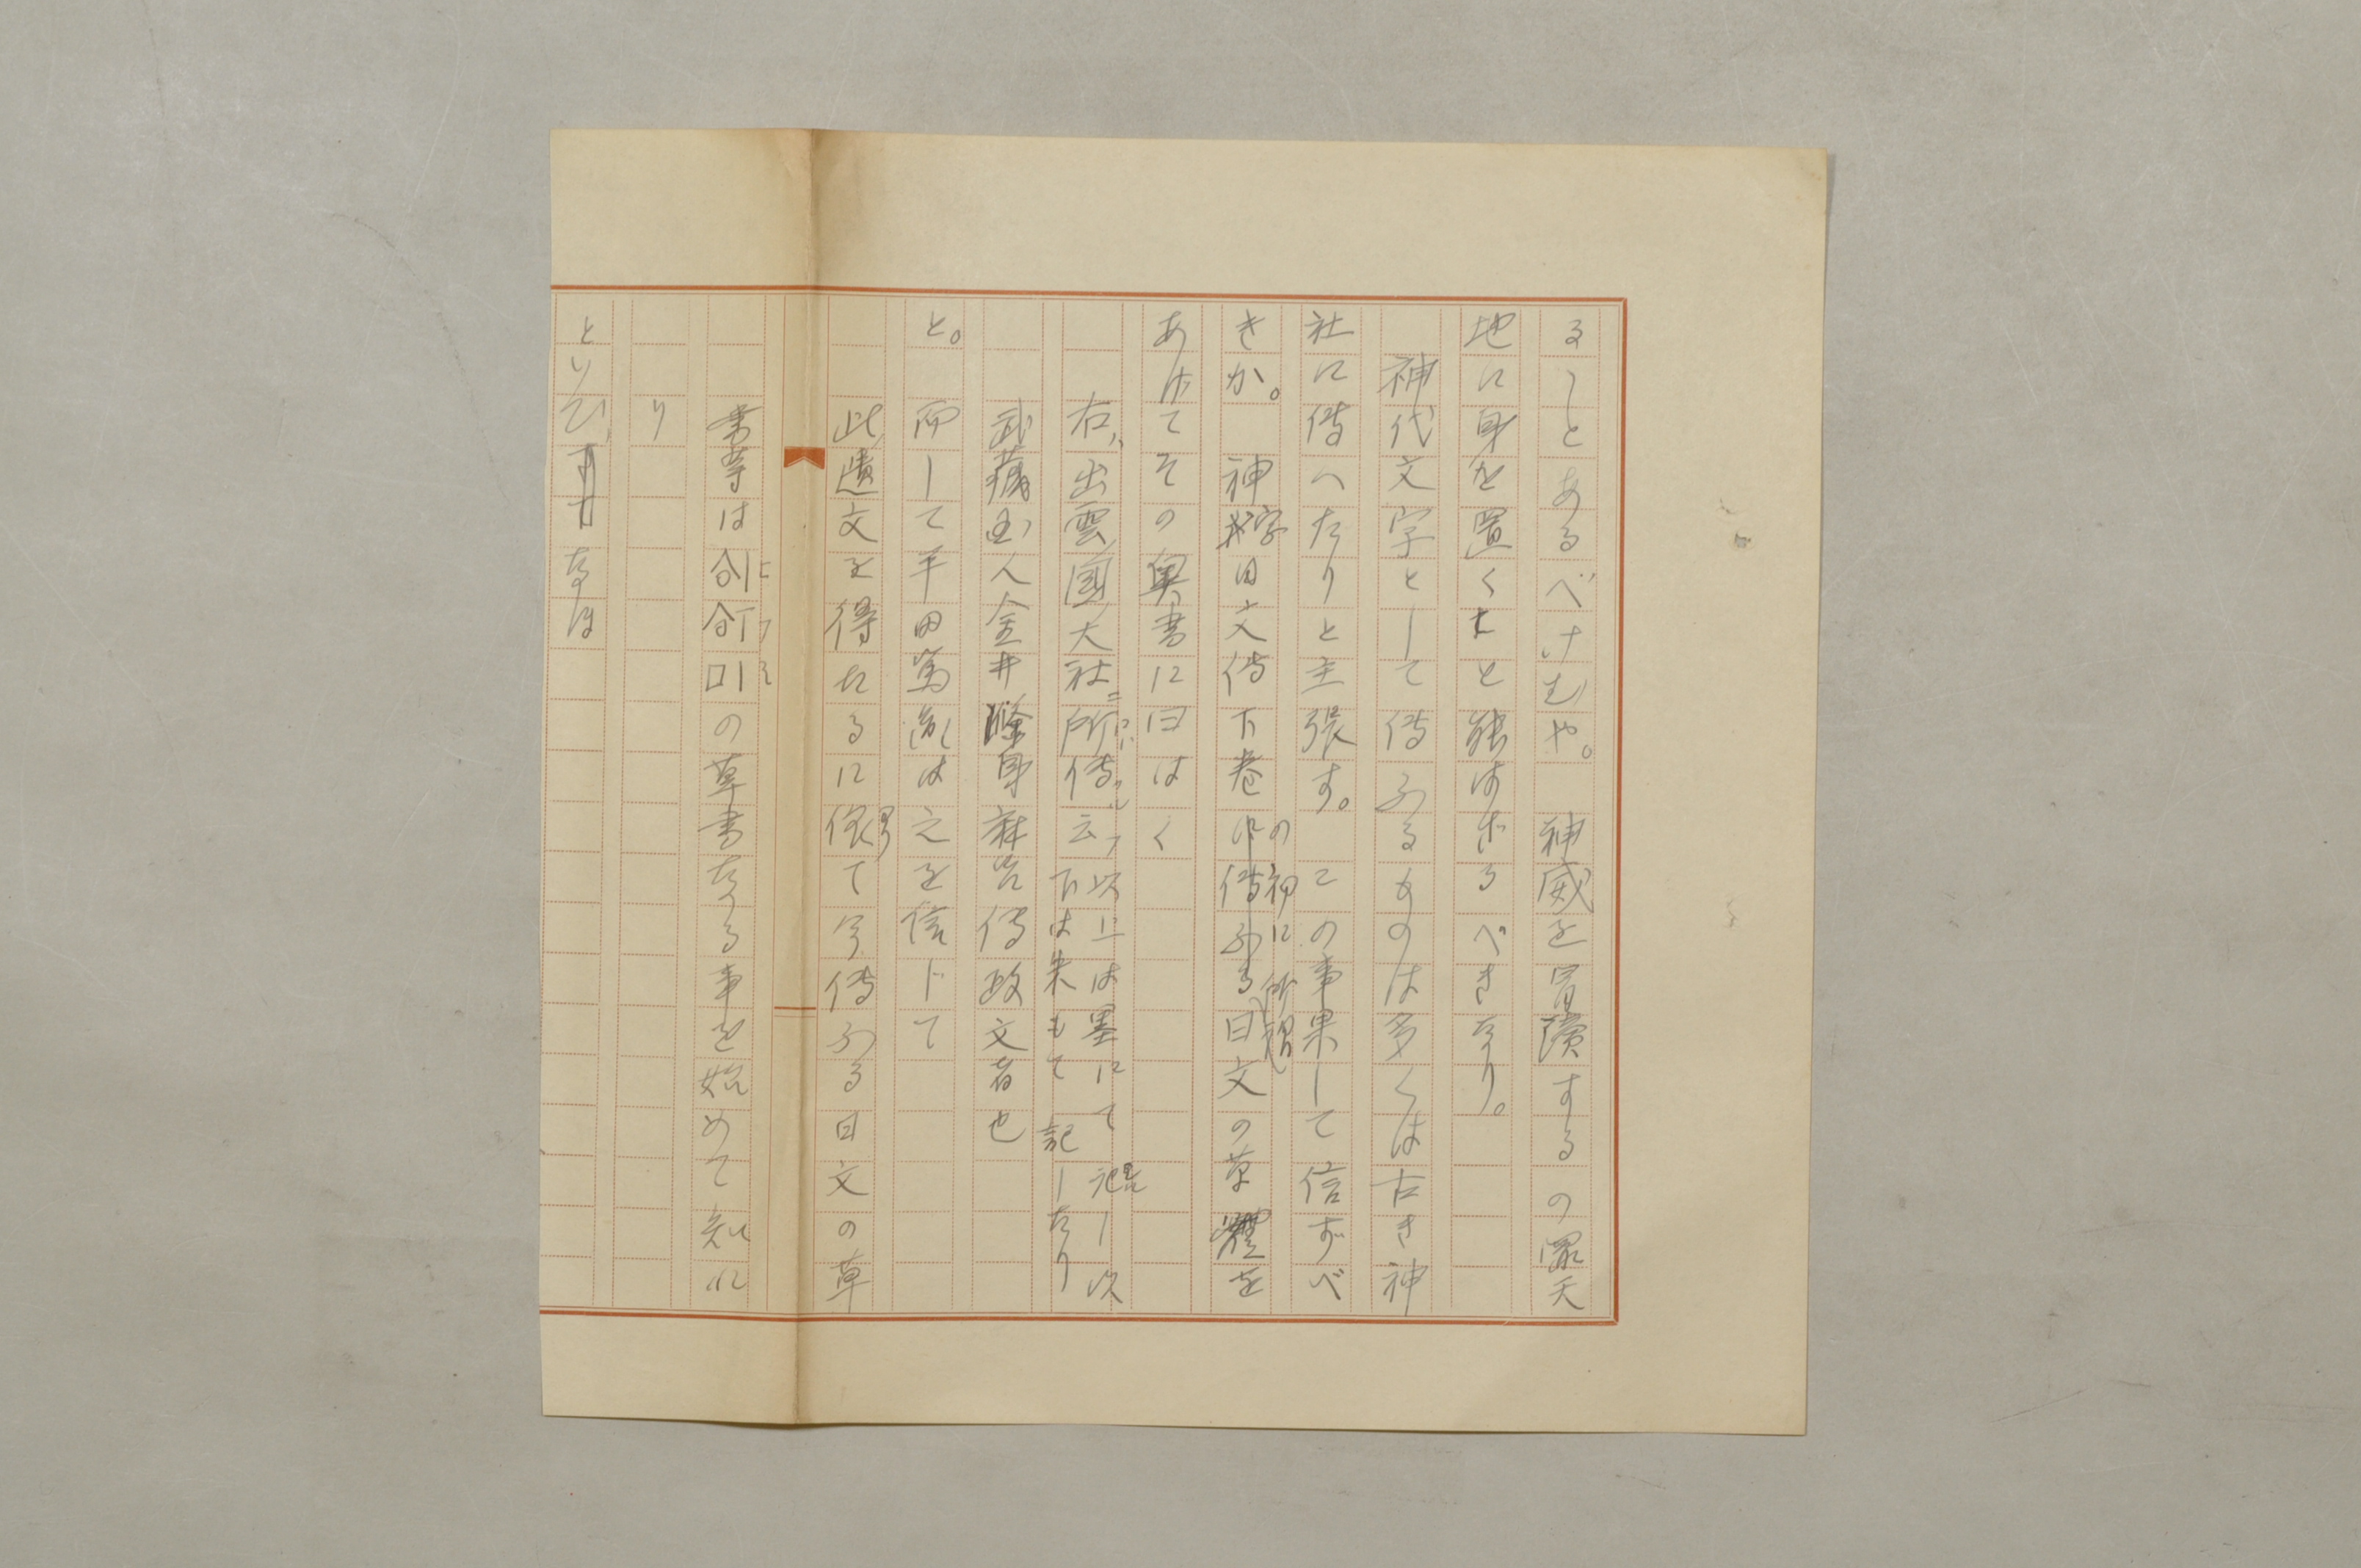 るしとあるべけむや。神威を冒瀆するの罪天
地に身を置くもと能はざるべきなり。
神代文字として傳ふるものは多くは古き神
社に傳へたりと主張す。この事果して信ずべ
きか。神字日文傳下巻の初に所謂日文の草體を
あげてその奥書に曰はく
右、出雲國大社ニ所傳ル云フ 以上は墨にて記し次下は朱もて記したり
武藏國人金井滌身麻呂傳授文者也
と。而して平田篤胤は之を信じて
此遺文を得たるに依りて今傳ふる日文の草
書等は
の草書なる事を始めて知れ
り
といひ、なほ